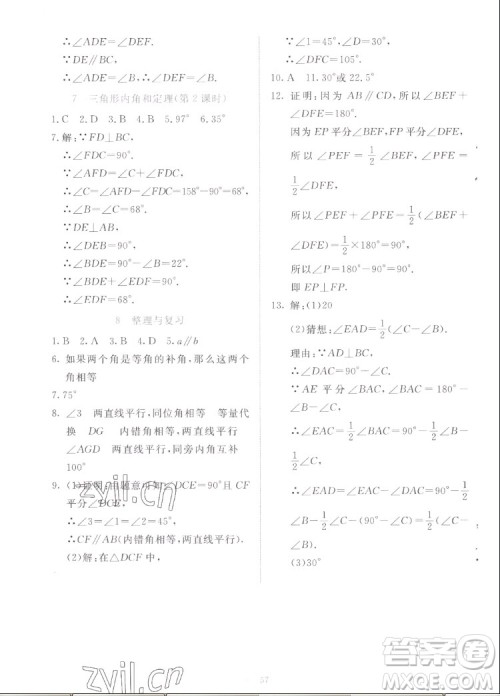 ∴∠ADE=∠DEF.
∴DE∥BC,
∴∠ADE=∠DEF.
7 三角形内角和定理(第2课时)
1. C 2. D 3. B 4. B 5. 97° 6. 35°
7. 解:∵FD⊥BC,
∴∠FDC=90°.
∵∠AFD=∠C+∠FDC,
∴∠C=∠AFD-∠FDC=158°-90°=68°.
∴∠B=∠C=68°.
∵DE⊥AB,
∴∠DEB=90°.
∴∠BDE=90°-∠B=22°.
∴∠BDE+∠EDF=90°,
∴∠EDF=68°
8 整理与复习
1. B 2. A 3. D 4. D 5. a∥b
6. 如果两个角是等角的补角,那么这两个
角相等
7. 75°
8. ∠3 两直线平行,同位角相等 等量代
换 DG 内错角相等,两直线平行
∠AGD 两直线平行,同旁内角互补
100°
9. (1)证明:由题意可知∠DCE=90°且CF
平分∠DCE,
∴∠3=∠1=∠2=45°.
∴CF∥AB(内错角相等,两直线平行).
(2)解:在△DCF中,
∵∠1=45°,∠D=30°,
∴∠DFC=105°.
10. A 11. 30°或22.5°
12. 证明:因为AB∥CD,所以∠BEF+
∠DFE=180°.
因为EP平分∠BEF,FP平分∠DFE,
所以∠PEF=1/2∠BEF,∠PFE=
1/2∠DFE,
所以∠PEF+∠PFE=1/2(∠BEF+
∠DFE)=1/2×180°=90°.
所以∠P=180°-90°=90°.
即EP⊥FP.
13. 解:(1)20
(2)猜想:∠EAD=1/2(∠C-∠B)
理由:∵AD⊥BC,
∴∠DAC=90°-∠C.
∵AE平分∠BAC,∠BAC=180°-
∠B-∠C,
∴∠EAC=1/2∠BAC=90°-1/2∠B-
1/2∠C,
∴∠EAD=∠EAC-∠DAC=90°-
1/2∠B-1/2∠C-(90°-∠C)=
(3)30°
57
zyjl.cn
zyjl.cn
答案圈
MXQE.COM